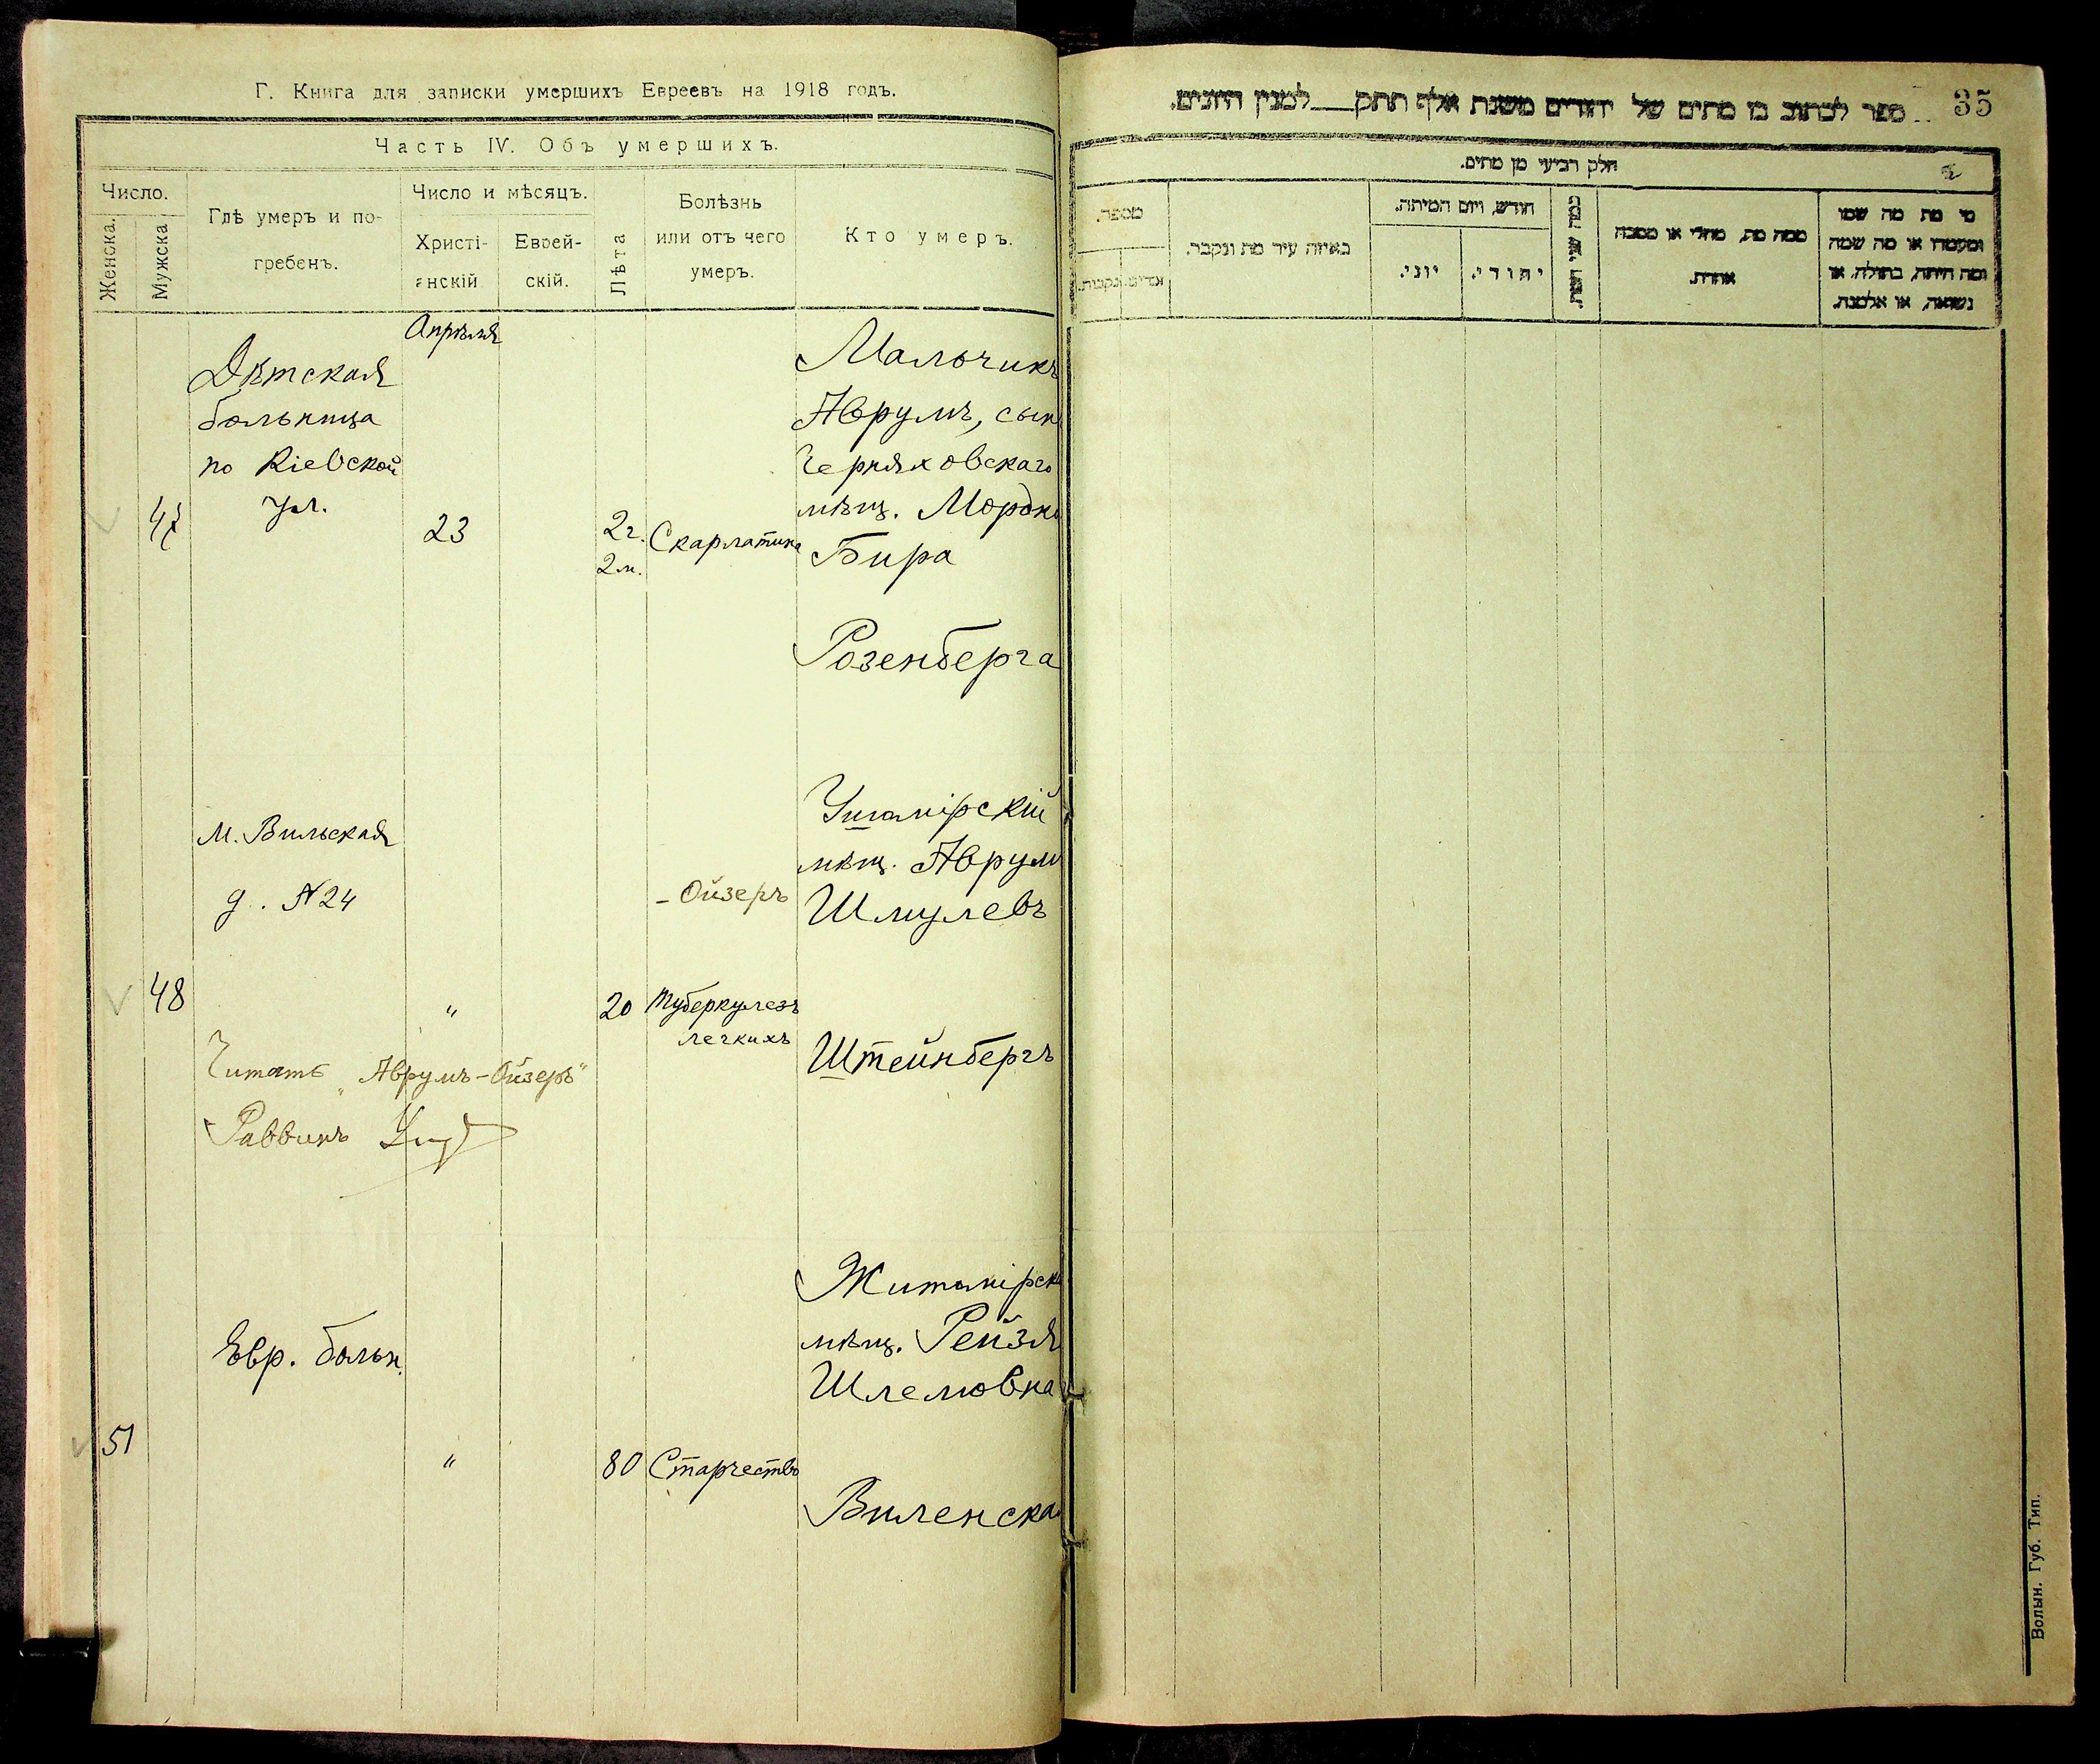 Г. Книга для записки умершихъ Евреевъ на 1918 годъ.
Часть IV. Объ умершихъ.
Число.
Женска.
Мужска
Гдѣ умеръ и по-
гребенъ.
Число и мѣсяцъ.
Христі-
анскій
Еврей-
скій.
Лѣта
Болѣзнь
или отъ чего
умеръ.
Кто умеръ.
Апрѣля
47
Дѣтская
больница
по Кіевской
ул.
23
2г.
2м.
Скарлатина
Мальчикъ
Аврумъ, сын
Черняховскаго
мѣщ. Мордко
Бира
Розенберга
48
м. Вильская
д. №24
"
20
Туберкулезъ
легкихъ
Ушомірскій
мѣщ. Аврум
- Ойзеръ
Шмулевъ
Штейнбергъ
Читать „Аврумъ-Ойзеръ"
Раввинъ
51
Евр. больн.
"
80
Старчество
Житомірск
мѣщ. Рейзя
Шлемовна
Виленска
ספר לכתוב בו מתים של יהודים משנת אלף תתק___למנין היונים.
35
חלק רביעי מן מתים.
מספר.
זכרים.
נקבות.
באיזה עיר מת ונקבר.
חודש, ויום המיתה.
יוני.
יהודי.
כמה שני חייו.
ממה מת, מחלי או מסבה
אחרת.
מי מת מה שמו
ומעמדו או מה שמה
ומה היתה, בתולה, או
נשואה, או אלמנה.
Волын. Губ. Тип.